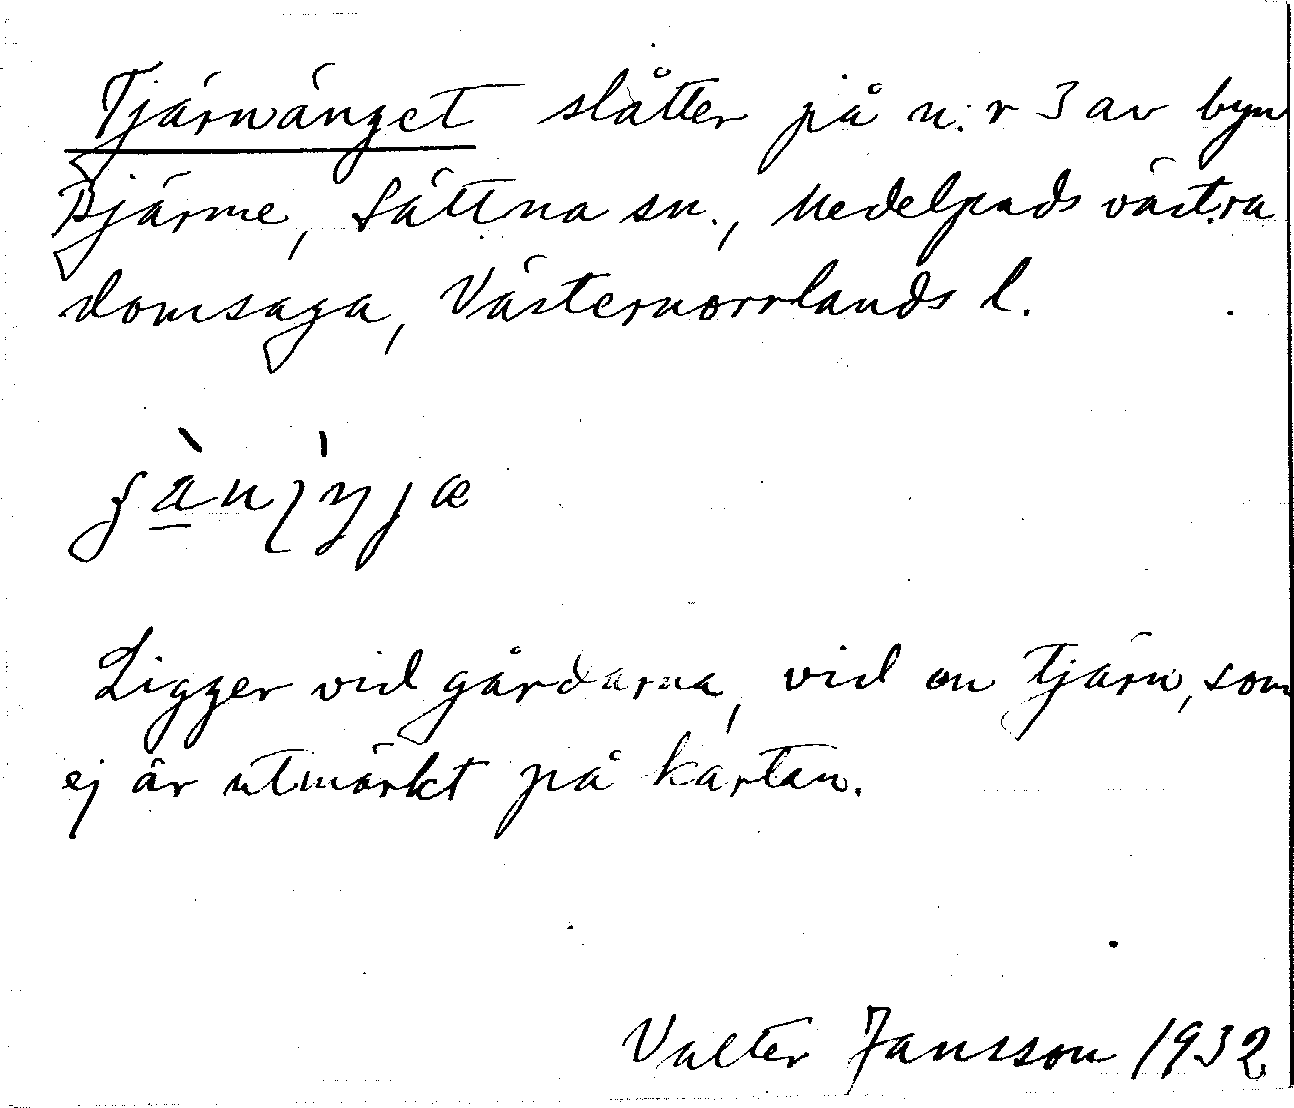 Tjärnänget slåtter på n:r 3 av byn
Bjärme, Sättna sn., Medelpads västra
domsaga, Västernorrlands l.
Ligger vid gårdarna, vid en tjärn, som
ej är utmärkt på kartan.
Valter Jansson 1932